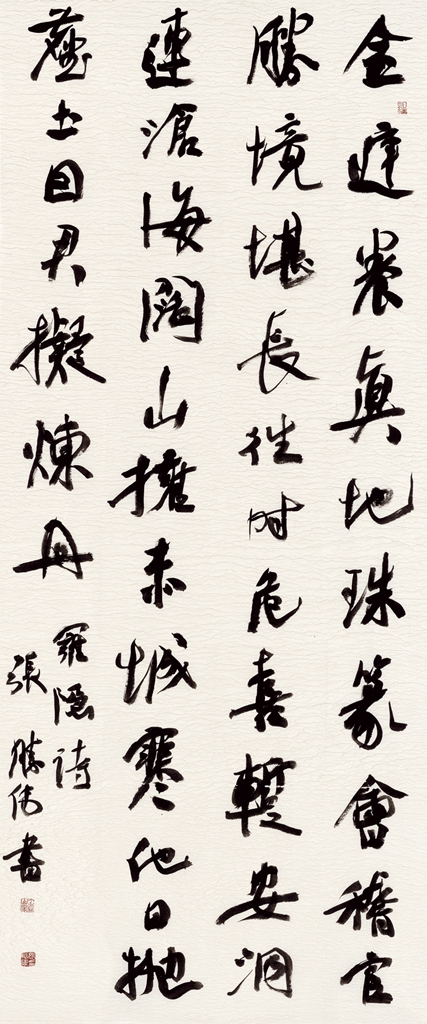 金庭養真地珠篆會稽官
勝境堪長往时危喜暫安洞
連滄海闊山擁赤城寒他日拋
塵土因君擬煉丹
羅隱詩
張勝伟書